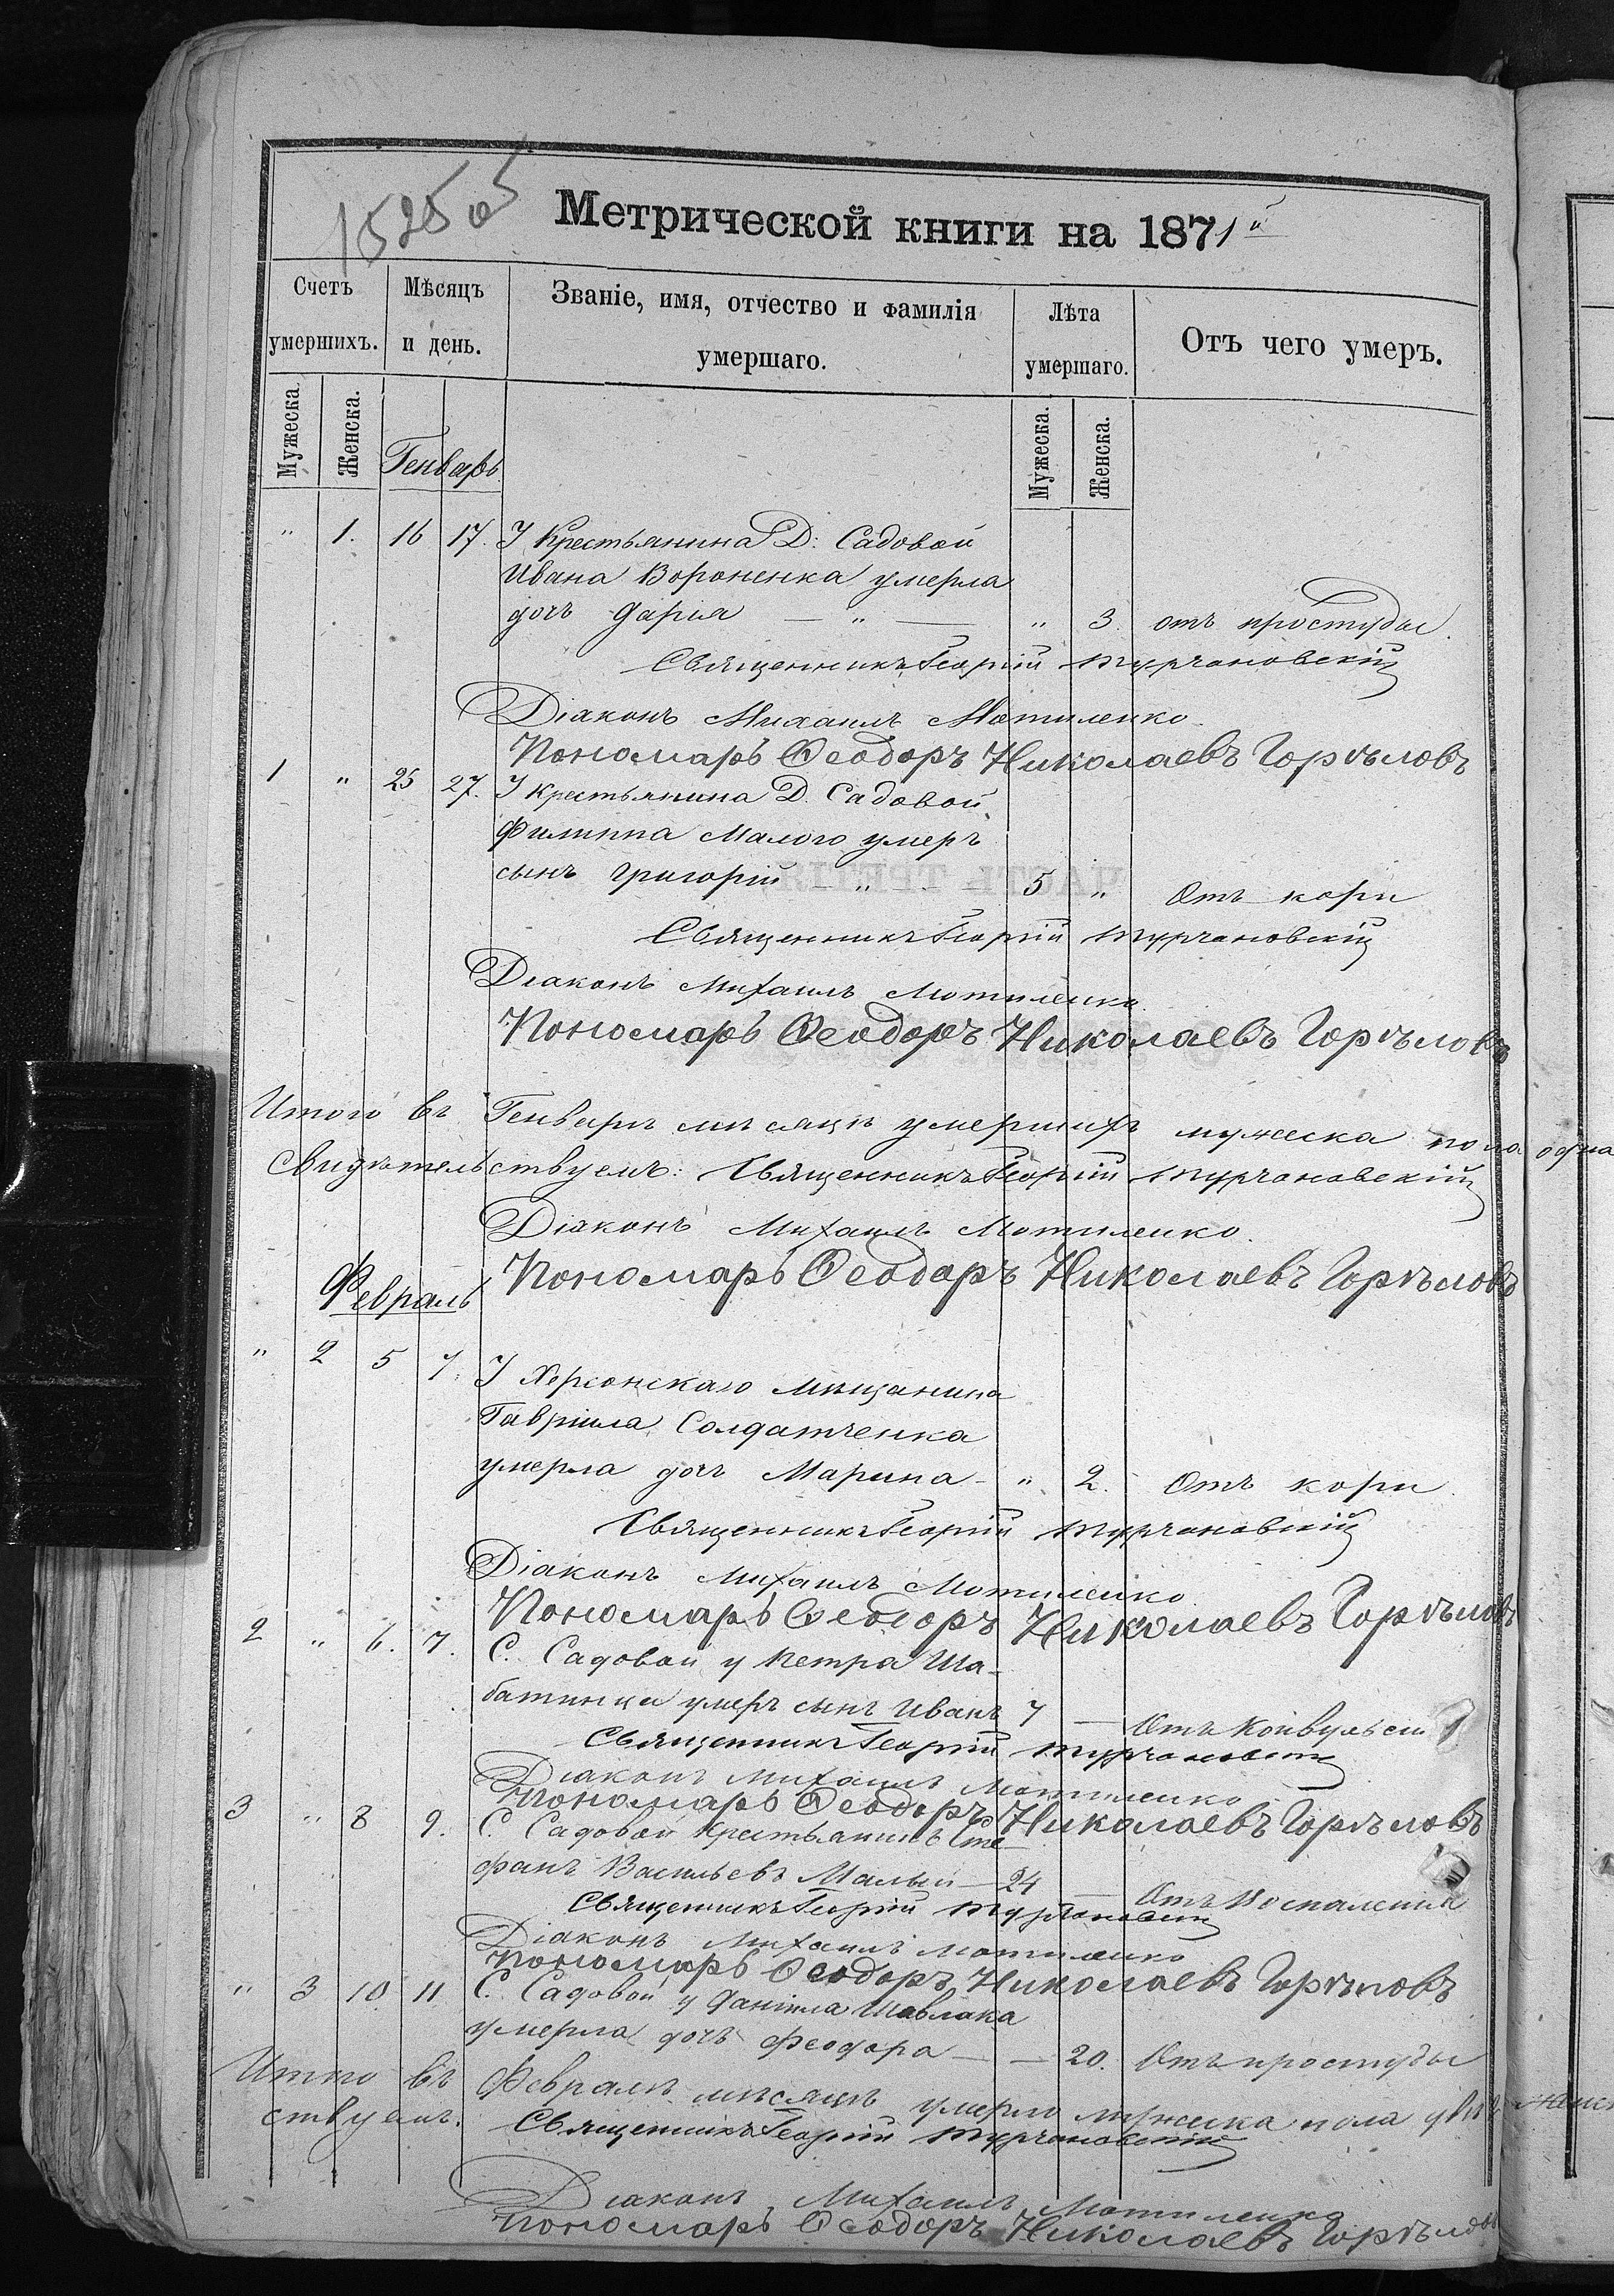 Метрической книги на 1871й
Счетъ умершихъ.
Мѣсяцъ и день.
Званіе, имя, отчество и фамилія умершаго.
Лѣта умершаго.
Отъ чего умеръ.
Мужеска.
Женска.
Генварь
Мужеска.
Женска.
" 1. 16 17. У Крестьянина Д: Садовой
Ивана Вороненка умерла
дочь Дарія — " — " 3 отъ простуды.
Священникъ Георгій Турчановскій
Діаконъ Михаилъ Мотиленко.
Пономарь Ѳеодоръ Николаевъ Горѣловъ
1 " 25 27. У крестьянина Д. Садовой
Филиппа Малого умеръ
сынъ Григорій — " — 5 " Отъ кори
Священникъ Георгій Турчановскій
Діаконъ Михаилъ Мотиленко
Пономарь Ѳеодоръ Николаевъ Горѣловъ
Итого въ Генварѣ мѣсяцѣ умершихъ мужеска пола одна
Свидѣтельствуемъ: Священникъ Георгій Турчановскій
Діаконъ Михаилъ Мотиленко.
Пономарь Ѳеодоръ Николаевъ Горѣловъ
Февраль
" 2 5 7. У Херсонскаго мѣщанина
Гавріила Солдатченка
умерла дочь Марина — " 2. Отъ кори.
Священникъ Георгій Турчановскій
Діаконъ Михаилъ Мотиленко
Пономарь Ѳеодоръ Николаевъ Горѣловъ
2 " 6. 7. С. Садовой у Петра Ша-
батинца умеръ сынъ Иванъ 7 — Отъ Конвульсіи
Священникъ Георгій Турчановскій
Діаконъ Михаилъ Мотиленко
Пономарь Ѳеодоръ Николаевъ Горѣловъ
3 " 8 9. С. Садовой крестьянинъ Сте
фанъ Васильевъ Малый — 24 — Отъ Воспаленія
Священникъ Георгій Турчановскій
Діаконъ Михаилъ Мотиленко
Пономарь Ѳеодоръ Николаевъ Горѣловъ
" 3 10 11 С. Садовой у Даніила Шавлака
умерла дочь Феодора — — 20. Отъ простуды
Итого въ Февралѣ мѣсяцѣ умерло мужеска пола два,
ствуемъ. Священникъ Георгій Турчановскій
Діаконъ Михаилъ Мотиленко
Пономарь Ѳеодоръ Николаевъ Горѣловъ